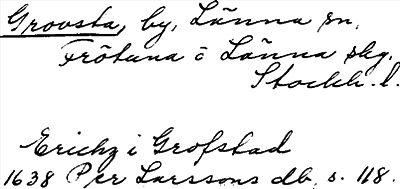 Grovsta, by, Länna sn,
Frötuna o Länna skg.
Stockh. l.
Erichz i Grofstad
1638 Per Larssons db, s. 118.